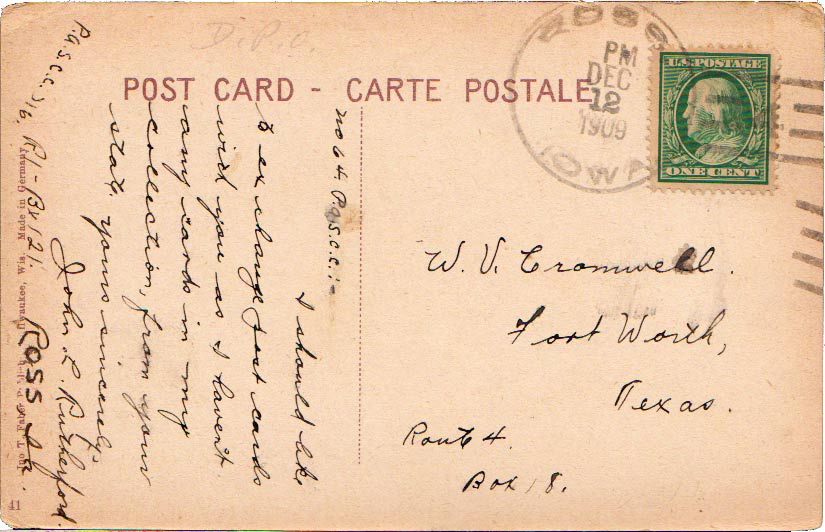 D.P.O.
POST CARD - CARTE POSTALE
ROSS
PM
DEC
12
1909
IOWA
U.S. POSTAGE
ONE CENT
no 64. P.a.S.C.C.:-
I should like
to exchange post cards
with you as I havent
any cards in my
collection, from your
state. yours sincerely.
John. L. Rutherford.
ROSS Ia.
P.a.S.C.C. 716. R1-Bx121.
W. V. Cromwell.
Fort Worth,
Texas.
Route 4.
Box 18.
Made in Germany
41